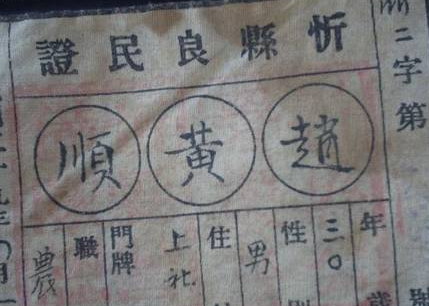 二字第
忻縣良民證
趙黃順
年
三〇
性
男
住
上社
門牌
職
農